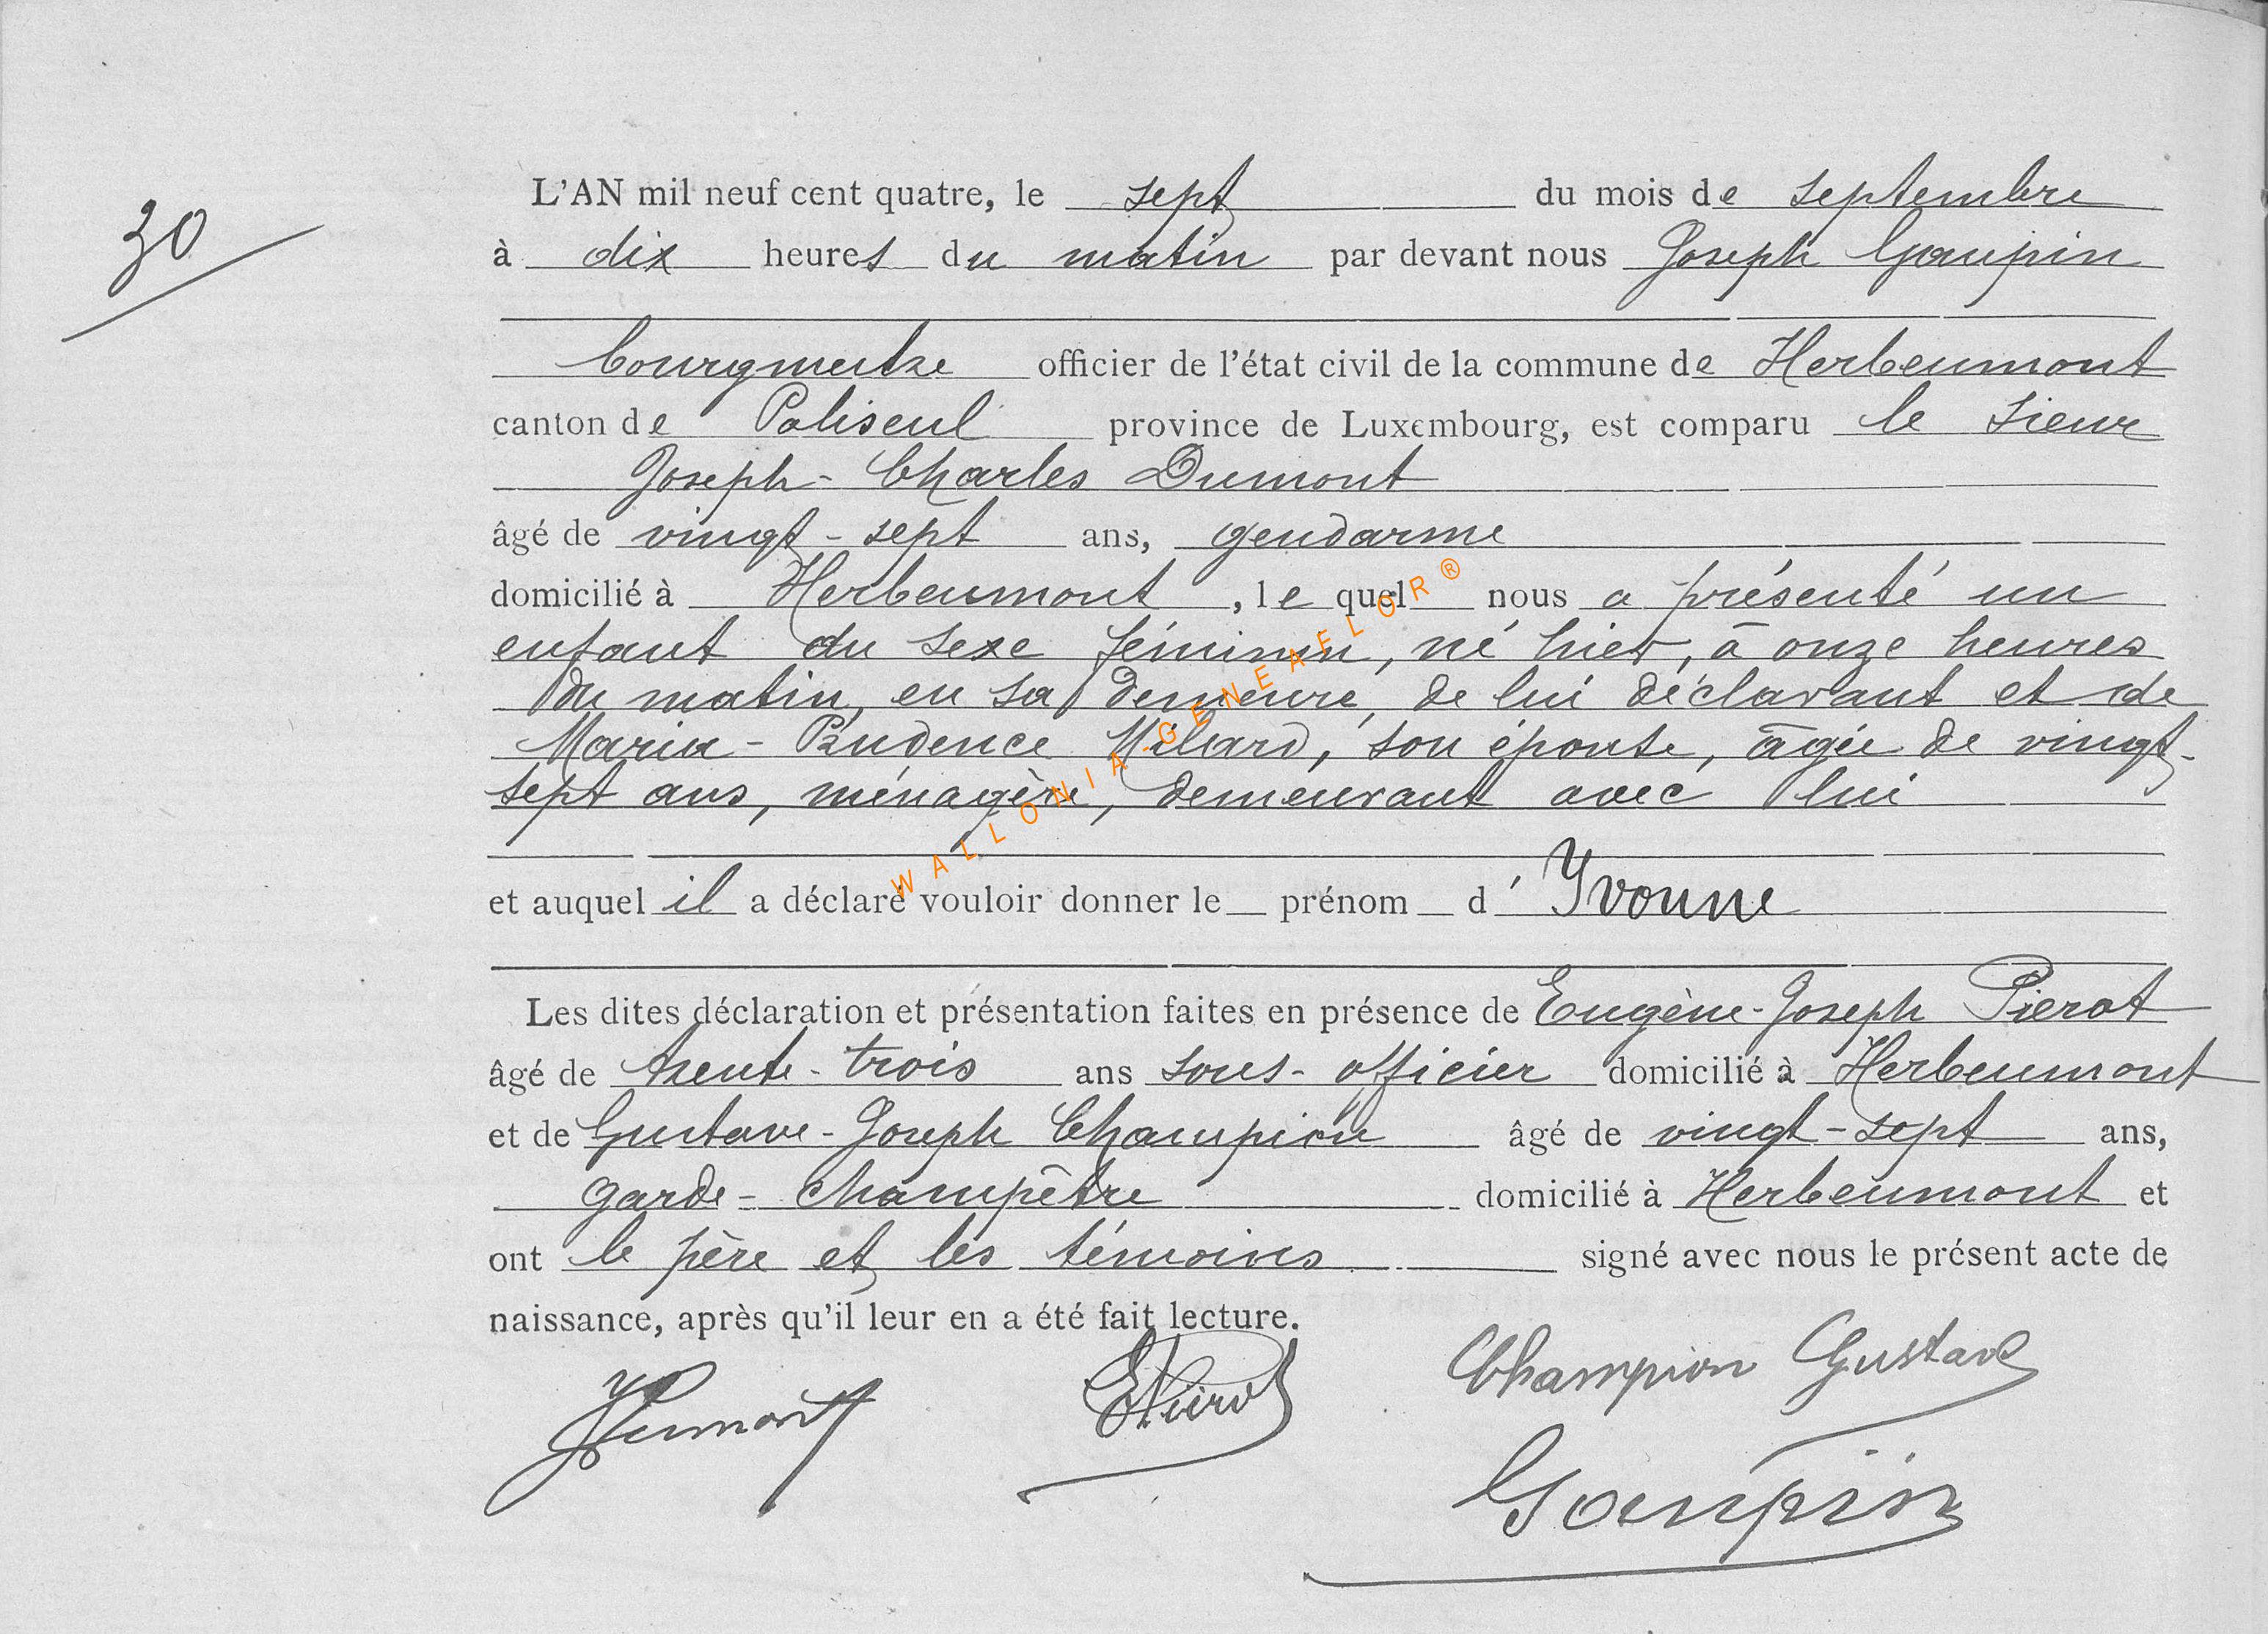 30
L'AN mil neuf cent quatre, le sept du mois de septembre
à dix heures du matin par devant nous Joseph Gaupin
bourgmestre officier de l'état civil de la commune de Herbeumont
canton de Paliseul province de Luxembourg, est comparu le sieur
Joseph-Charles Dumont
âgé de vingt-sept ans, gendarme
domicilié à Herbeumont, lequel nous a présenté un
enfant du sexe féminin, né hier, à onze heures
du matin, en sa demeure, de lui déclarant et de
Maria-Prudence Milard, son épouse, âgée de vingt-
sept ans, ménagère, demeurant avec lui
et auquel il a déclaré vouloir donner le prénom d'Yvonne
Les dites déclaration et présentation faites en présence de Eugène-Joseph Pierot
âgé de trente-trois ans sous-officier domicilié à Herbeumont
et de Gustave-Joseph Champion âgé de vingt-sept ans,
garde-champêtre domicilié à Herbeumont et
ont le père et les témoins signé avec nous le présent acte de
naissance, après qu'il leur en a été fait lecture.
JDumont EPierot Champion Gustave
Gaupin
WALLONIA-GENEAFLOR®